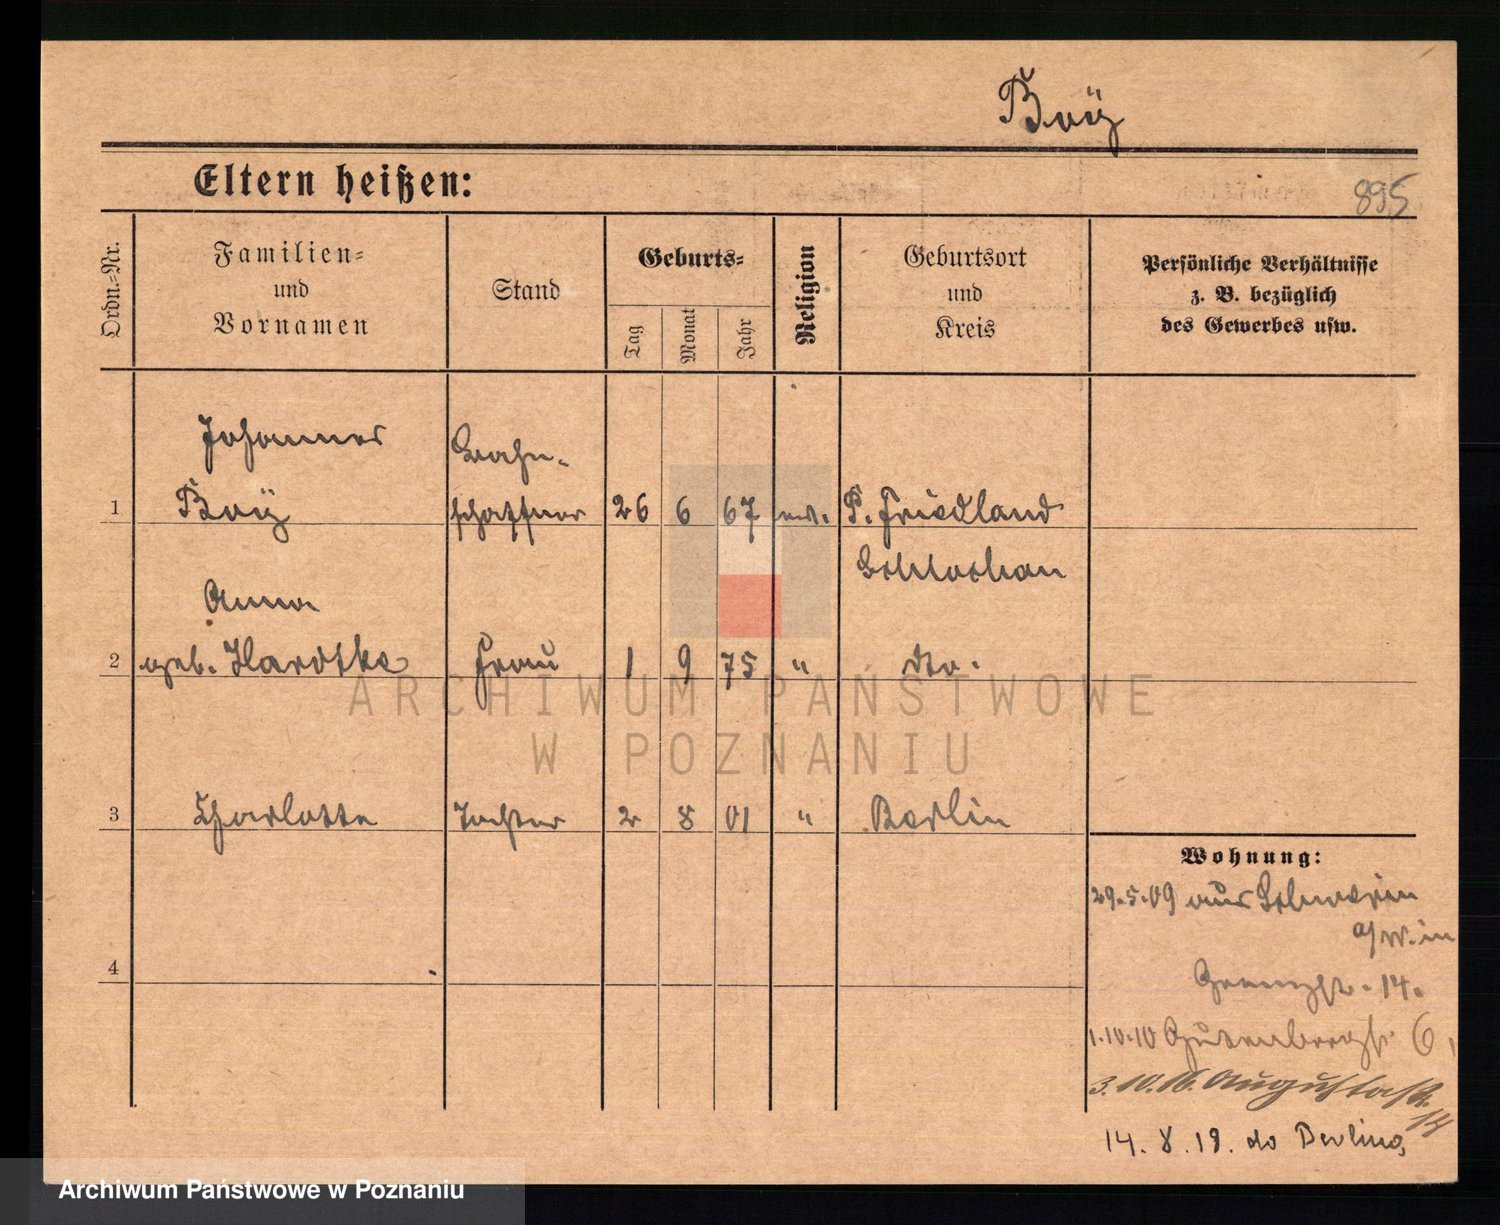 Boÿ
Eltern heißen:
895
Ordn.-Nr.
Familien-
und
Vornamen
Stand
Geburts-
Tag
Monat
Jahr
Religion
Geburtsort
und
Kreis
Persönliche Verhältnisse
z. B. bezüglich
des Gewerbes usw.
Johannes
Bahn-
1 Boÿ schaffner 26 6 67 ev. P. Friedland
Schlochau
Anna
2 geb. Hardtke Frau 1 9 75 " dto.
3 Charlotte Tochter 2 8 01 " Berlin
Wohnung:
29.5.09 aus Schwerin
a/W. in
4
Grenzstr. 14.
1.10.10 Gutenbergstr. 6,
3.10.16. Augustastr.
14
14. 8. 19. do Berlina
ARCHIWUM PAŃSTWOWE
W POZNANIU
Archiwum Państwowe w Poznaniu